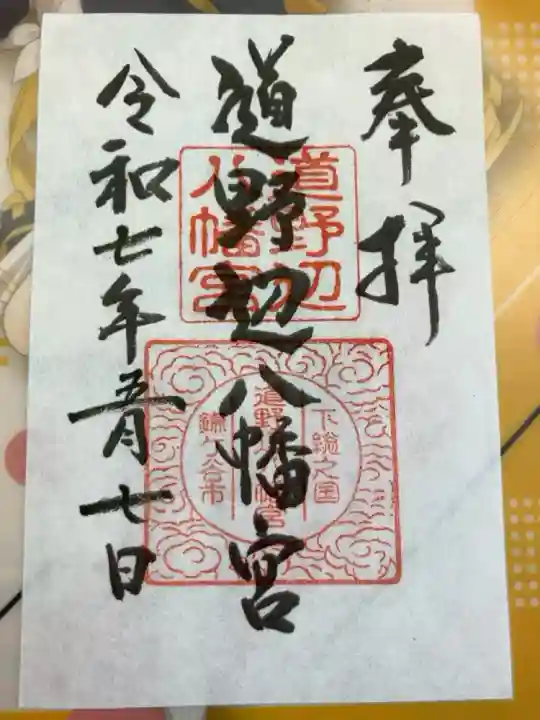 奉拝
道野辺八幡宮
令和七年五月七日
道野辺
八幡宮
下総之国
道野辺八幡宮
鎌ケ谷市